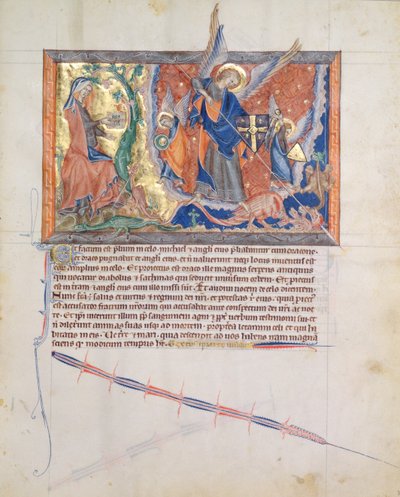 Et factum est prelium in celo. michael et angli eius preliabantur cum dracone.
et draco pugnabat et angli eius. et non valuerunt neqz locus inventus est
eorum amplius in celo. Et proiectus est draco ille magnus serpens antiquus
qui vocatur dyabolus et sathanas qui seducit universum orbem. Et proiectus
est in terram et angli eius cum illo missi sunt. Et audivi vocem de celo dicentem
Nunc facta est salus et virtus et regnum dei nostri. et potestas xpi eius. quia proiectus
est accusator fratrum nostrorum qui accusabat eos ante conspectum dei nostri die ac noc
te. Et ipsi vicerunt illum propter sanguinem agni et propter verbum testimonii sui. et
non dilexerunt animas suas usqz ad mortem. propterea letamini celi et qui ha
bitatis in eis. Ve terre et mari. quia descendit ad vos habens iram magnam
sciens quod modicum tempus habet.